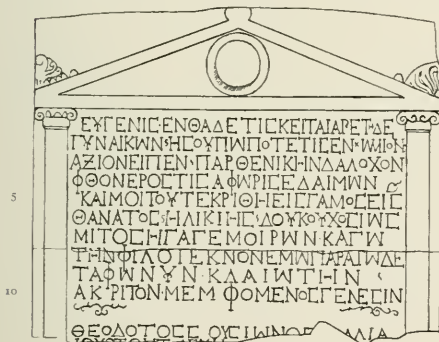 ΕΥΓΕΝΙϹ·ΕΝΘΑΔΕΤΙϹΚΕΙΤΑΙΑΡΕΤ·ΔΕ
ΓΥΝΑΙΚΩΝ·ΗϹΟΥΠΩΠΟΤΕΤΙϹΕΝ·ΩΜΙΟΝ
ΑΞΙΟΝΕΙΠΕΝ·ΠΑΡΘΕΝΙΚΗΝΔΑΛΟΧΟΝ
ΦΘΟΝΕΡΟϹΤΙϹΑΦΩΡΙϹΕΔΑΙΜΩΝ
5 ·ΚΑΙΜΟΙΤΟΥΤΕΚΡΙΘΗΕΙϹΓΑΜΟϹΕΙϹ
ΘΑΝΑΤΟϹ·ΗΛΙΚΙΗϹ·ΔΟΥΚΟΥΧΟϹΙΩϹ
ΜΙΤΟϹΗΓΑΓΕΜΟΙΡΩΝ·ΚΑΓΩ
ΤΗΝΦΙΛΟΤΕΚΝΟΝΕΜΩΠΑΡΑΤΩΔΕ
ΤΑΦΩΝΥΝ·ΚΛΑΙΩΤΗΝ
10 ΑΚ·ΡΙΤΟΝ·ΜΕΜΦΟΜΕΝΟϹΓΕΝΕϹΙΝ
ΘΕΟΔΟΤΟϹ